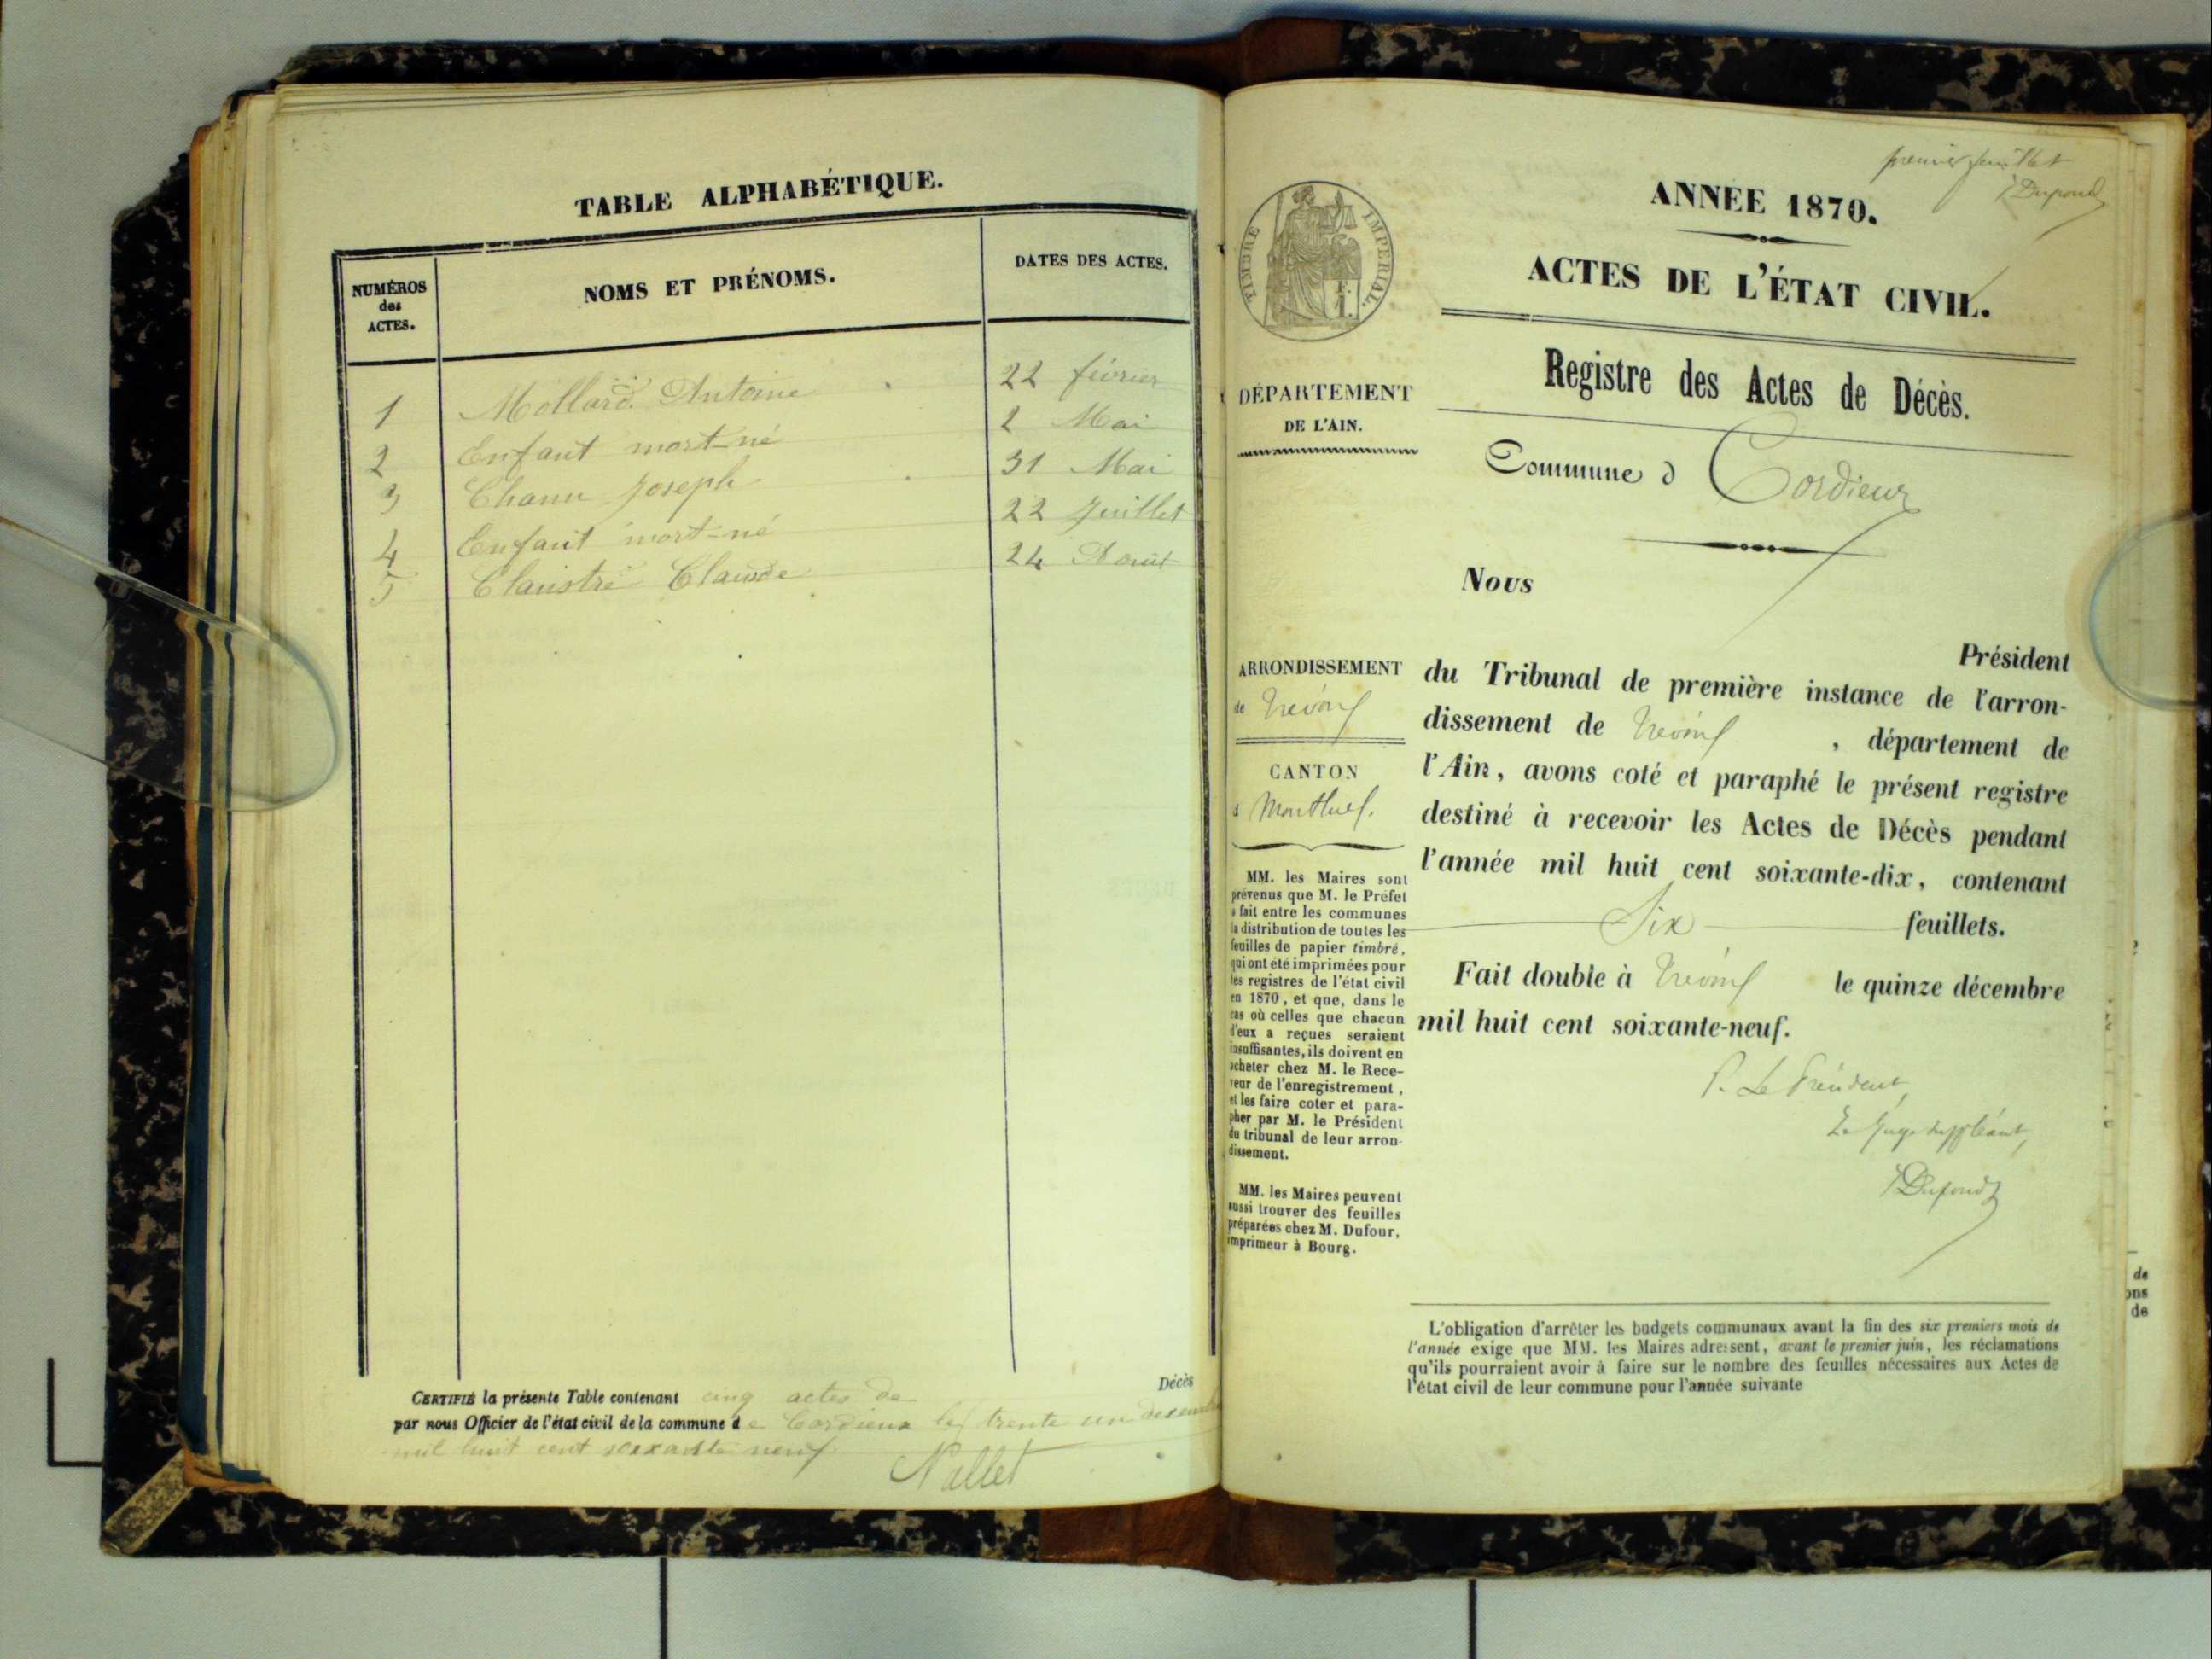 TABLE ALPHABÉTIQUE.
NUMÉROS
des
ACTES.
NOMS ET PRÉNOMS.
DATES DES ACTES.
1 Mollard Antoine 22 février
2 Enfant mort-né 2 Mai
3 Chanu Joseph 31 Mai
4 Enfant mort-né 22 Juillet
5 Claustre Claude 24 Août
CERTIFIÉ la présente Table contenant cinq actes de Décès
par nous Officier de l'état civil de la commune de Cordieux le trente un decembre
mil huit cent soixante neuf
Nallet
premier feuillet
Dupond
TIMBRE IMPÉRIAL.
1 F.
ANNÉE 1870.
ACTES DE L'ÉTAT CIVIL.
Registre des Actes de Décès.
DÉPARTEMENT
DE L'AIN.
Commune d Cordieux
ARRONDISSEMENT
de Trévoux
CANTON
d Montluel.
MM. les Maires sont
prévenus que M. le Préfet
a fait entre les communes
la distribution de toutes les
feuilles de papier timbré,
qui ont été imprimées pour
les registres de l'état civil
en 1870, et que, dans le
cas où celles que chacun
d'eux a reçues seraient
insuffisantes, ils doivent en
acheter chez M. le Rece-
veur de l'enregistrement,
et les faire coter et para-
pher par M. le Président
du tribunal de leur arron-
dissement.
MM. les Maires peuvent
aussi trouver des feuilles
préparées chez M. Dufour,
imprimeur à Bourg.
NOUS
Président
du Tribunal de première instance de l'arron-
dissement de Trévoux, département de
l'Ain, avons coté et paraphé le présent registre
destiné à recevoir les Actes de Décès pendant
l'année mil huit cent soixante-dix, contenant
Six feuillets.
Fait double à Trévoux le quinze décembre
mil huit cent soixante-neuf.
P. Le Président,
Le Juge suppléant,
Dupond
L'obligation d'arrêter les budgets communaux avant la fin des six premiers mois de
l'année exige que MM. les Maires adressent, avant le premier juin, les réclamations
qu'ils pourraient avoir à faire sur le nombre des feuilles nécessaires aux Actes de
l'état civil de leur commune pour l'année suivante
de
ons
de